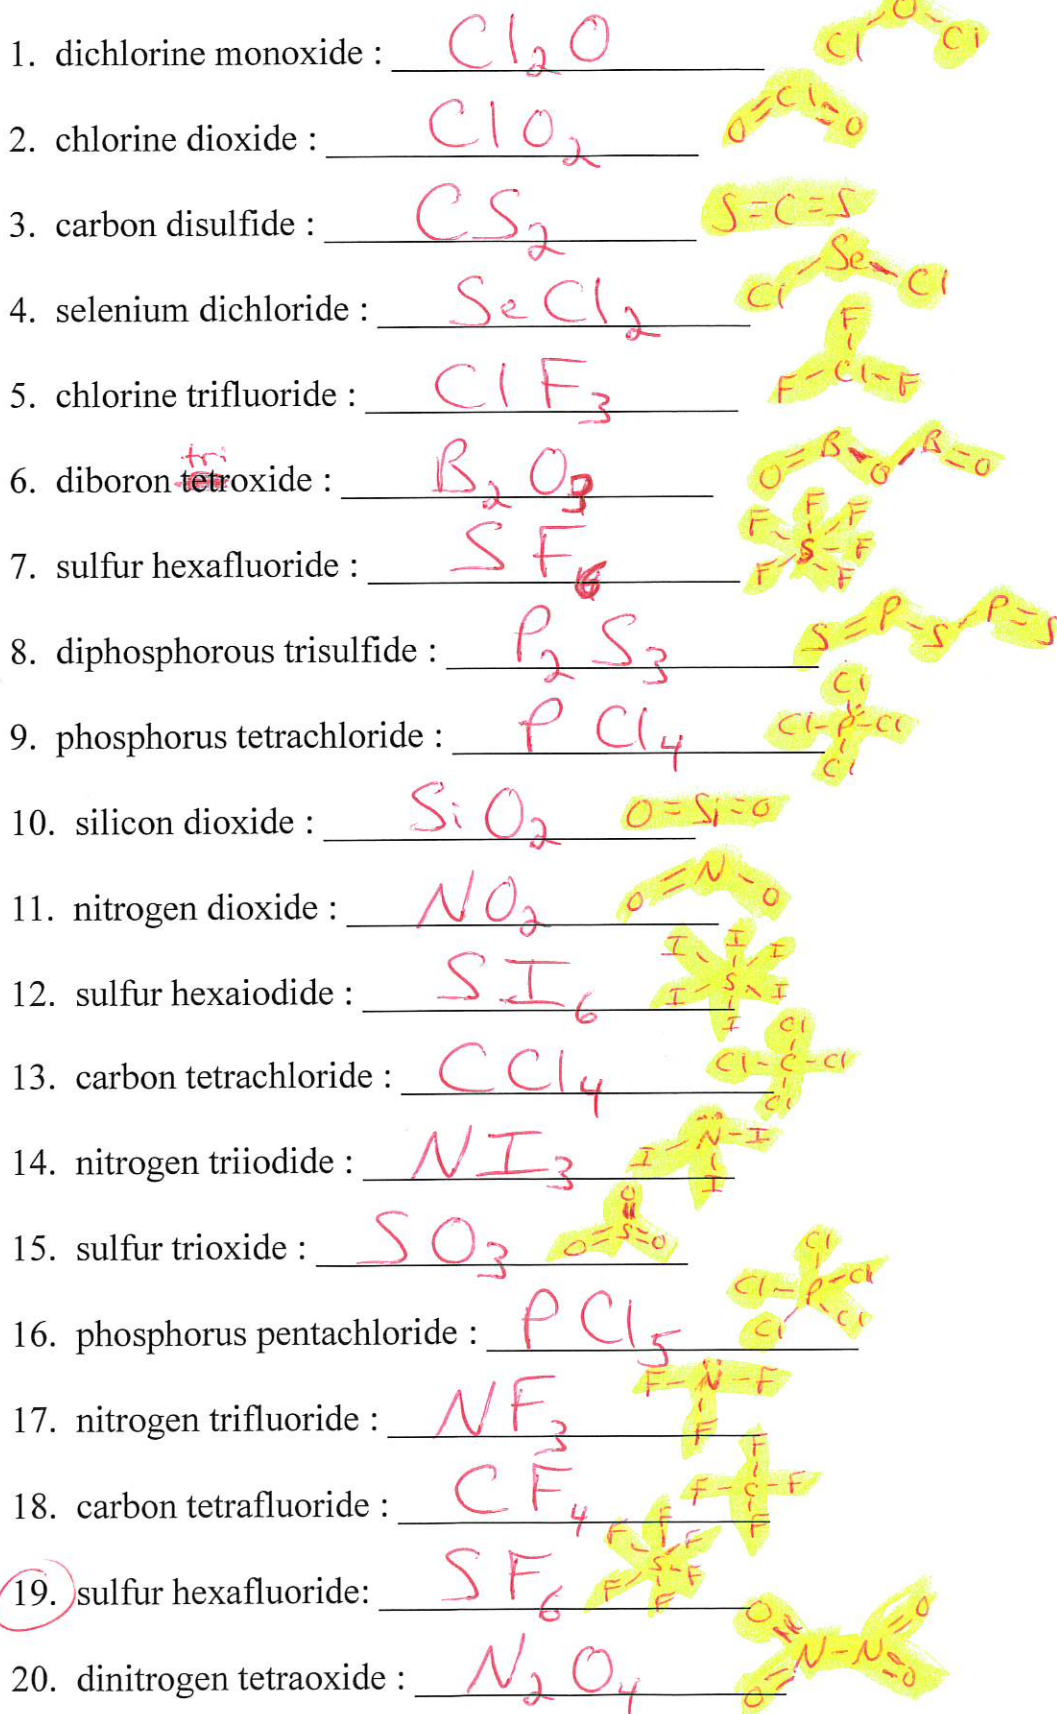 1. dichlorine monoxide : Cl2O Cl O Cl
2. chlorine dioxide : ClO2 O=Cl=O
3. carbon disulfide : CS2 S=C=S
4. selenium dichloride : SeCl2 Cl-Se-Cl
5. chlorine trifluoride : ClF3 F F-Cl-F
tri
6. diboron tetroxide : B2O3 O=B-O-B=O
7. sulfur hexafluoride : SF6 F F F F S F F F
8. diphosphorous trisulfide : P2S3 S=P-S-P=S
9. phosphorus tetrachloride : PCl4 Cl Cl-P-Cl Cl
10. silicon dioxide : SiO2 O=Si=O
11. nitrogen dioxide : NO2 O=N-O
12. sulfur hexaiodide : SI6 I I I I S I I
13. carbon tetrachloride : CCl4 Cl Cl-C-Cl Cl
14. nitrogen triiodide : NI3 I-N-I I
15. sulfur trioxide : SO3 O O=S=O
16. phosphorus pentachloride : PCl5 Cl Cl-P-Cl Cl Cl
17. nitrogen trifluoride : NF3 F-N-F F
18. carbon tetrafluoride : CF4 F F-C-F F
19. sulfur hexafluoride: SF6 F F F S F F F
20. dinitrogen tetraoxide : N2O4 O O N-N O O